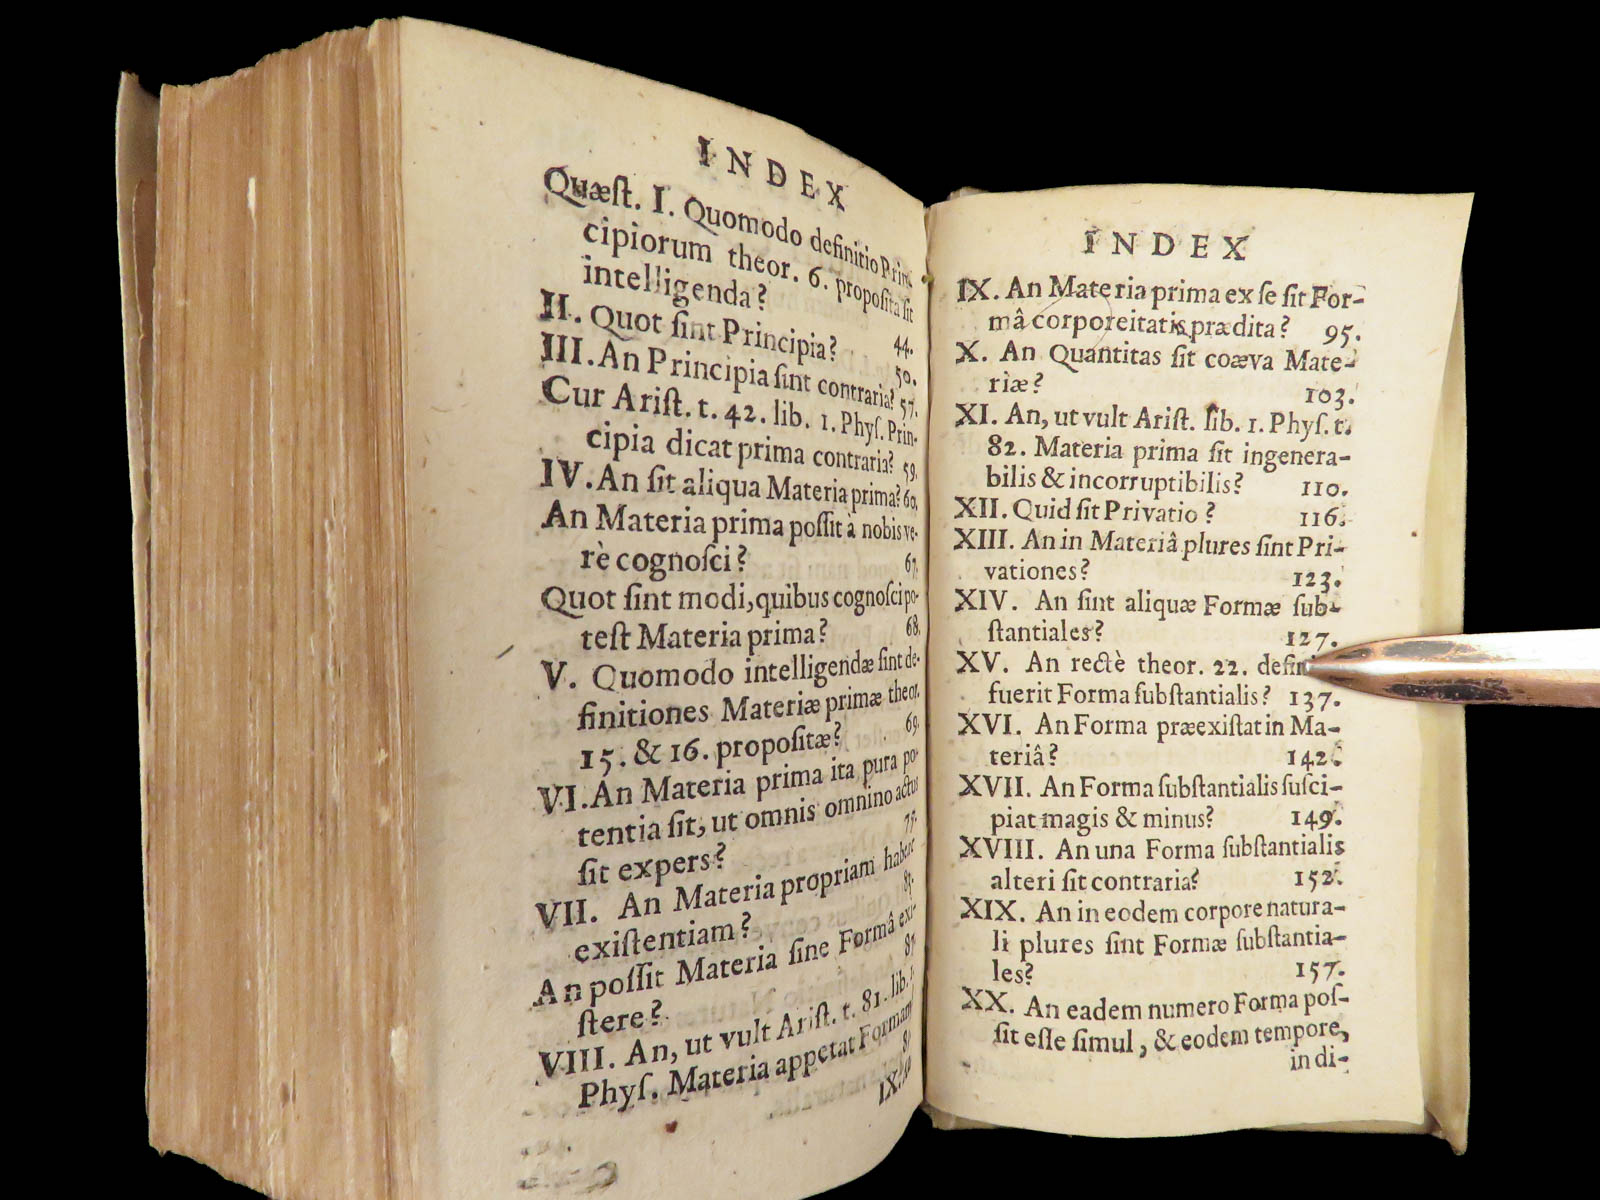 INDEX
Quæſt. I. Quomodo definitio Prin-
cipiorum theor. 6. propoſita ſit
intelligenda? 44.
II. Quot ſint Principia? 50.
III. An Principia ſint contraria? 57.
Cur Ariſt. t. 42. lib. 1. Phyſ. Prin-
cipia dicat prima contraria? 59.
IV. An ſit aliqua Materia prima? 60.
An Materia prima poſſit à nobis ve-
rè cognoſci? 67.
Quot ſint modi, quibus cognoſci po-
teſt Materia prima? 68.
V. Quomodo intelligendæ ſint de-
finitiones Materiæ primæ theor.
15. & 16. propoſitæ? 69.
VI. An Materia prima ita pura po-
tentia ſit, ut omnis omnino actus
ſit expers? 75.
VII. An Materia propriam habeat
exiſtentiam?
An poſſit Materia ſine Formâ exi-
ſtere? 87.
VIII. An, ut vult Ariſt. t. 81. lib. 1.
Phyſ. Materia appetat Formam?
IX. An
INDEX
IX. An Materia prima ex ſe ſit For-
mâ corporeitatis prædita? 95.
X. An Quantitas ſit coæva Mate-
riæ? 103.
XI. An, ut vult Ariſt. lib. 1. Phyſ. t.
82. Materia prima ſit ingenera-
bilis & incorruptibilis? 110.
XII. Quid ſit Privatio? 116.
XIII. An in Materiâ plures ſint Pri-
vationes? 123.
XIV. An ſint aliquæ Formæ ſub-
ſtantiales? 127.
XV. An rectè theor. 22. defini
fuerit Forma ſubſtantialis? 137.
XVI. An Forma præexiſtat in Ma-
teriâ? 142.
XVII. An Forma ſubſtantialis ſuſci-
piat magis & minus? 149.
XVIII. An una Forma ſubſtantialis
alteri ſit contraria? 152.
XIX. An in eodem corpore natura-
li plures ſint Formæ ſubſtantia-
les? 157.
XX. An eadem numero Forma poſ-
ſit eſſe ſimul, & eodem tempore,
in di-